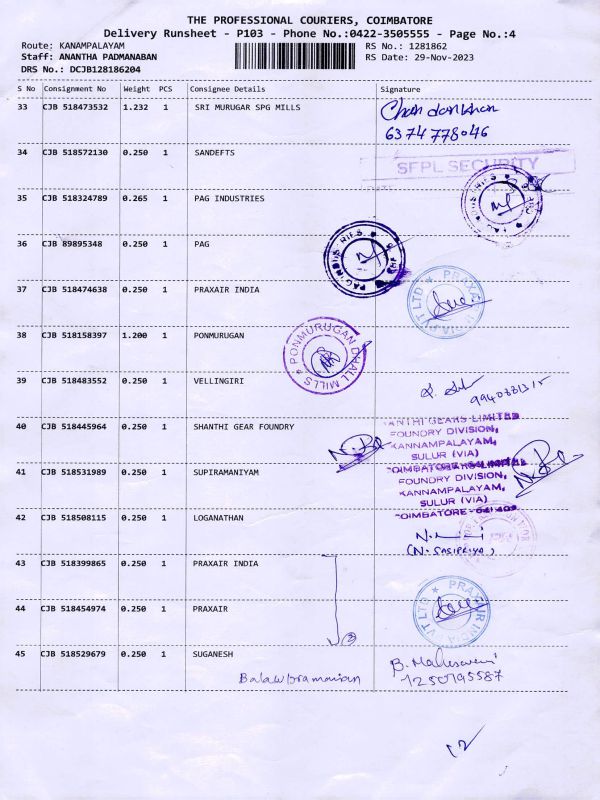 THE PROFESSIONAL COURIERS, COIMBATORE
Delivery Runsheet - P103 - Phone No.:0422-3505555 - Page No.:4
Route: KANAMPALAYAM RS No.: 1281862
Staff: ANANTHA PADMANABAN RS Date: 29-Nov-2023
DRS No.: DCJB128186204
S No Consignment No Weight PCS Consignee Details Signature
33 CJB 518473532 1.232 1 SRI MURUGAR SPG MILLS
6374778046
34 CJB 518572130 0.250 1 SANDEFTS
SFPL SECURITY
35 CJB 518324789 0.265 1 PAG INDUSTRIES
36 CJB 89895348 0.250 1 PAG
PAG INDUSTRIES
37 CJB 518474638 0.250 1 PRAXAIR INDIA
PRAXAIR INDIA PVT LTD
38 CJB 518158397 1.200 1 PONMURUGAN
PONMURUGAN DHALL MILLS
39 CJB 518483552 0.250 1 VELLINGIRI
40 CJB 518445964 0.250 1 SHANTHI GEAR FOUNDRY
ANTHI GEARS LIMITED
FOUNDRY DIVISION,
KANNAMPALAYAM,
SULUR (VIA)
41 CJB 518531989 0.250 1 SUPIRAMANIYAM
FOUNDRY DIVISION,
KANNAMPALAYAM,
SULUR (VIA)
COIMBATORE - 641 402
42 CJB 518508115 0.250 1 LOGANATHAN
(N. SASIPRIYA)
43 CJB 518399865 0.250 1 PRAXAIR INDIA
44 CJB 518454974 0.250 1 PRAXAIR
PRAXAIR INDIA PVT LTD
45 CJB 518529679 0.250 1 SUGANESH
B. Maheswari
1250195587
12